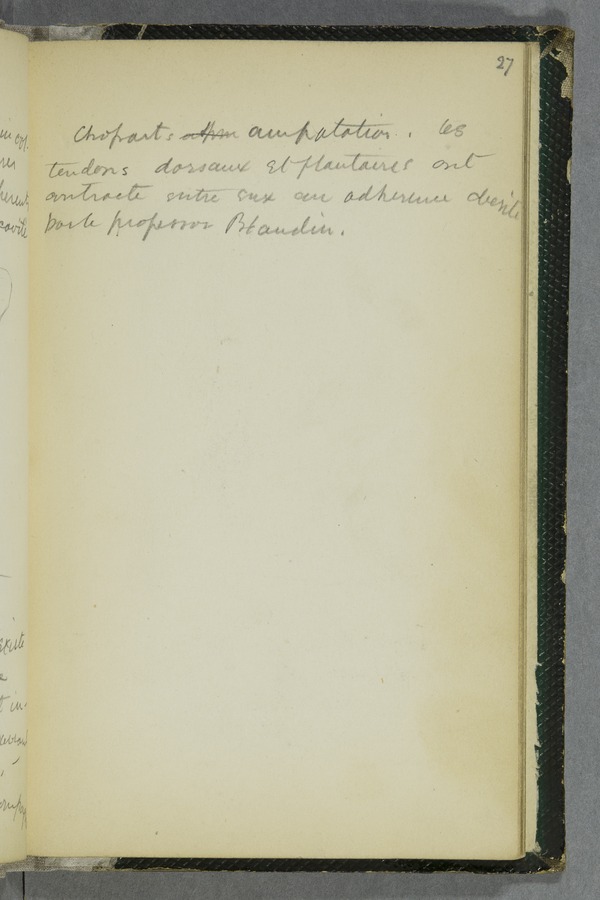 27
Choparts amputation. les
tendons dorsaux et plantaires ont
contracte entre eux un adherence
par le professor Blandin.